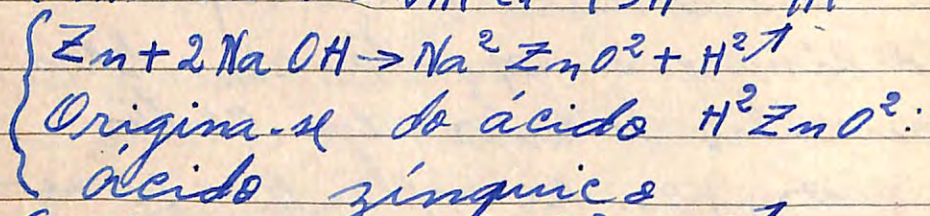 Zn + 2 Na OH → Na² Zn O² + H² ↑
Origina-se do ácido H² Zn O²:
ácido zínquico